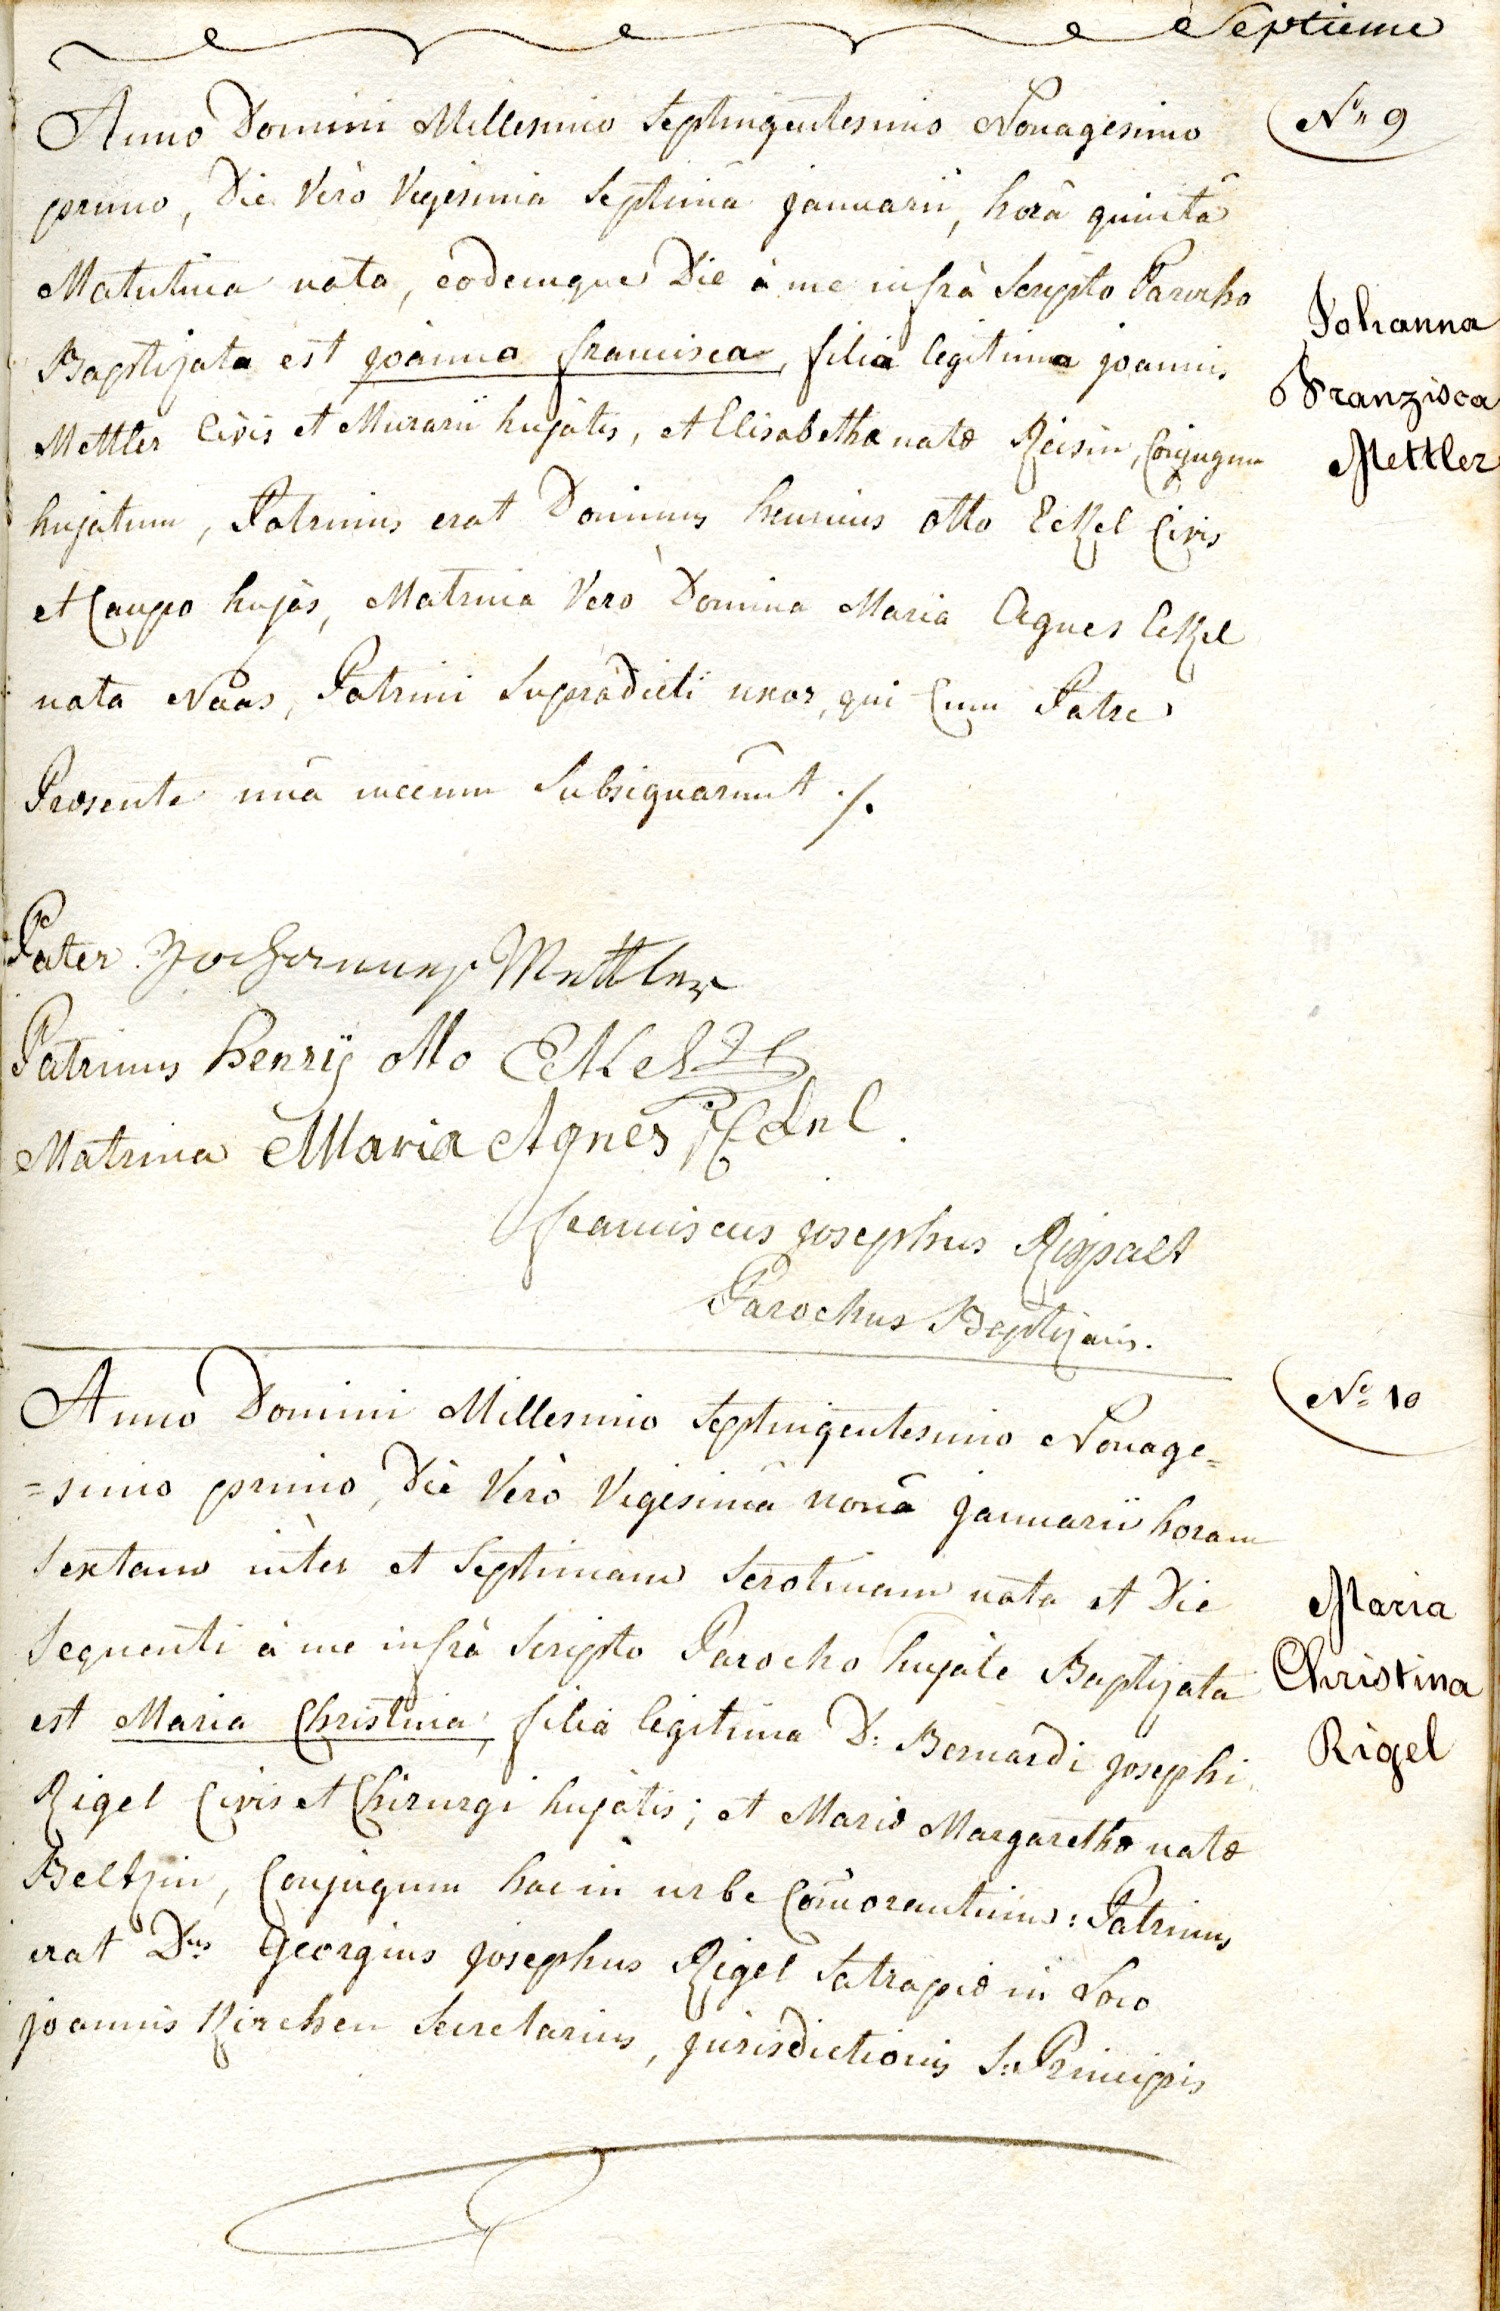 Septieme
Nº 9
Anno Domini Millesimo Septingentesimo Nonagesimo
primo, Die Verò Vigesima Septimâ januarii, horâ quintâ
Matutina nata, eodemque Die à me infrà Scripto Parocho
Baptizata est joanna francisca, filia legitima joannis
Mettler Civis et Murarii hujatis, et Elisabethæ natæ Reisin, Conjugum
hujatum, Patrinus erat Dominus henricus otto Eckel Civis
et Caupo hujàs, Matrina Verò Domina Maria Agnes Eckel
nata Naas, Patrini Supradicti uxor, qui Cum Patre
Præsente unâ mecum Subsignarunt ./.
Johanna
Franzisca
Mettler
Pater Johannes Mettler
Patrinus henrÿ otto Eckel
Matrina Maria Agnes Eckel.
franciscus josephus Rispalt
Parochus Baptizans.
Nº 10
Anno Domini Millesimo Septingentesimo Nonage=
=simo primo, Die Verò Vigesimâ nonâ januarii horam
Sextam inter et Septimam Serotinam nata et Die
Sequenti à me infrà Scripto Parocho hujàte Baptizata
est Maria Christina, filia legitima D: Bernardi josephi
Rigel Civis et Chirurgi hujàtis; et Mariæ Margarethæ natæ
Beltzin, Conjugum hac in urbe Com̄orantium: Patrinus
erat Dnus Georgius josephus Rigel Satrapiæ in Loco
joannis Kirchen Secretarius, jurisdictionis S: Principis
Maria
Christina
Rigel